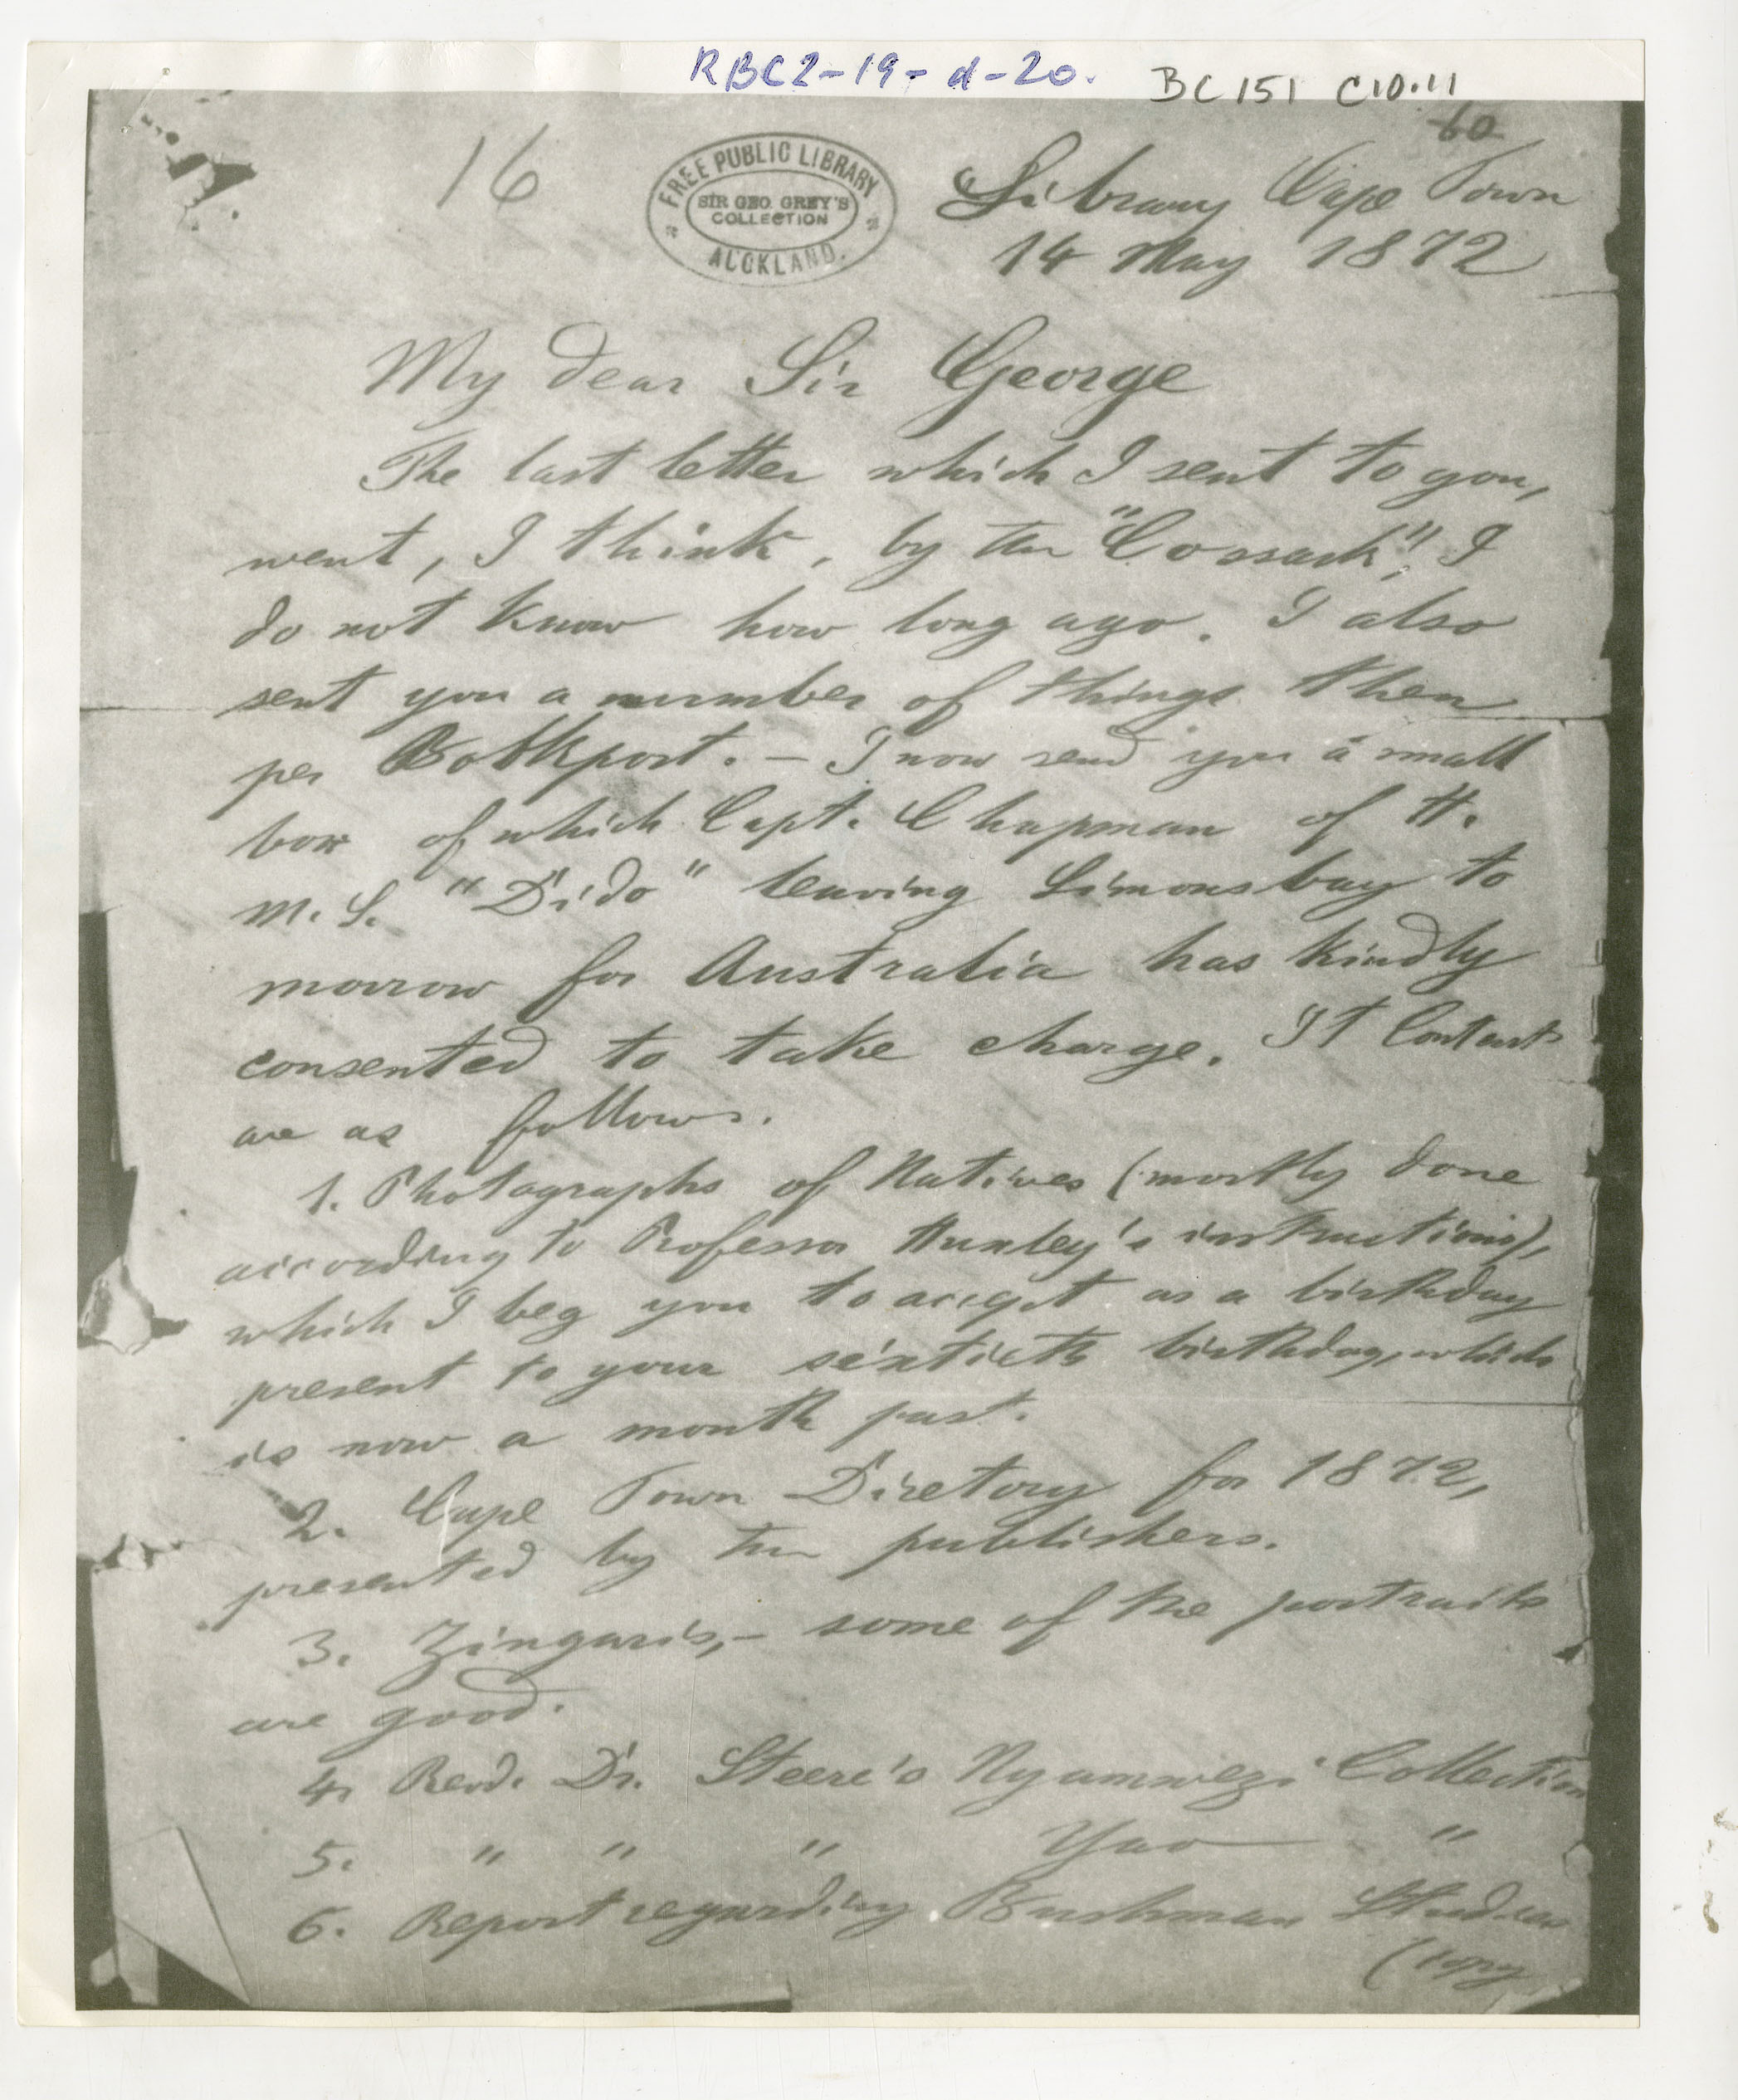 RBC2-19-d-20.
BC 151 C10.11
60
16
FREE PUBLIC LIBRARY
SIR GEO. GREY'S
COLLECTION
AUCKLAND.
Library Cape Town
14 May 1872
My dear Sir George
The last letter which I sent to you,
went, I think, by the "Cossack", I
do not know how long ago. I also
sent you a number of things then
per Bookpost. – I now send you a small
box of which Capt. Chapman of H.
M. S. "Dido" leaving Simonsbay to
morrow for Australia has kindly
consented to take charge. It Contents
are as follows.
1. Photographs of Natives (mostly done
according to Professor Huxley's instructions),
which I beg you to accept as a birthday
present to your sixtieth birthday, which
is now a month past.
2. Cape Town Diretory for 1872,
presented by the publishers.
3. Zingaris, – some of the portraits
are good.
4. Revd. Dr. Steere's Nyamwezi Collection
5. " " " Yao "
6. Report regarding Bushman Studies
(copy